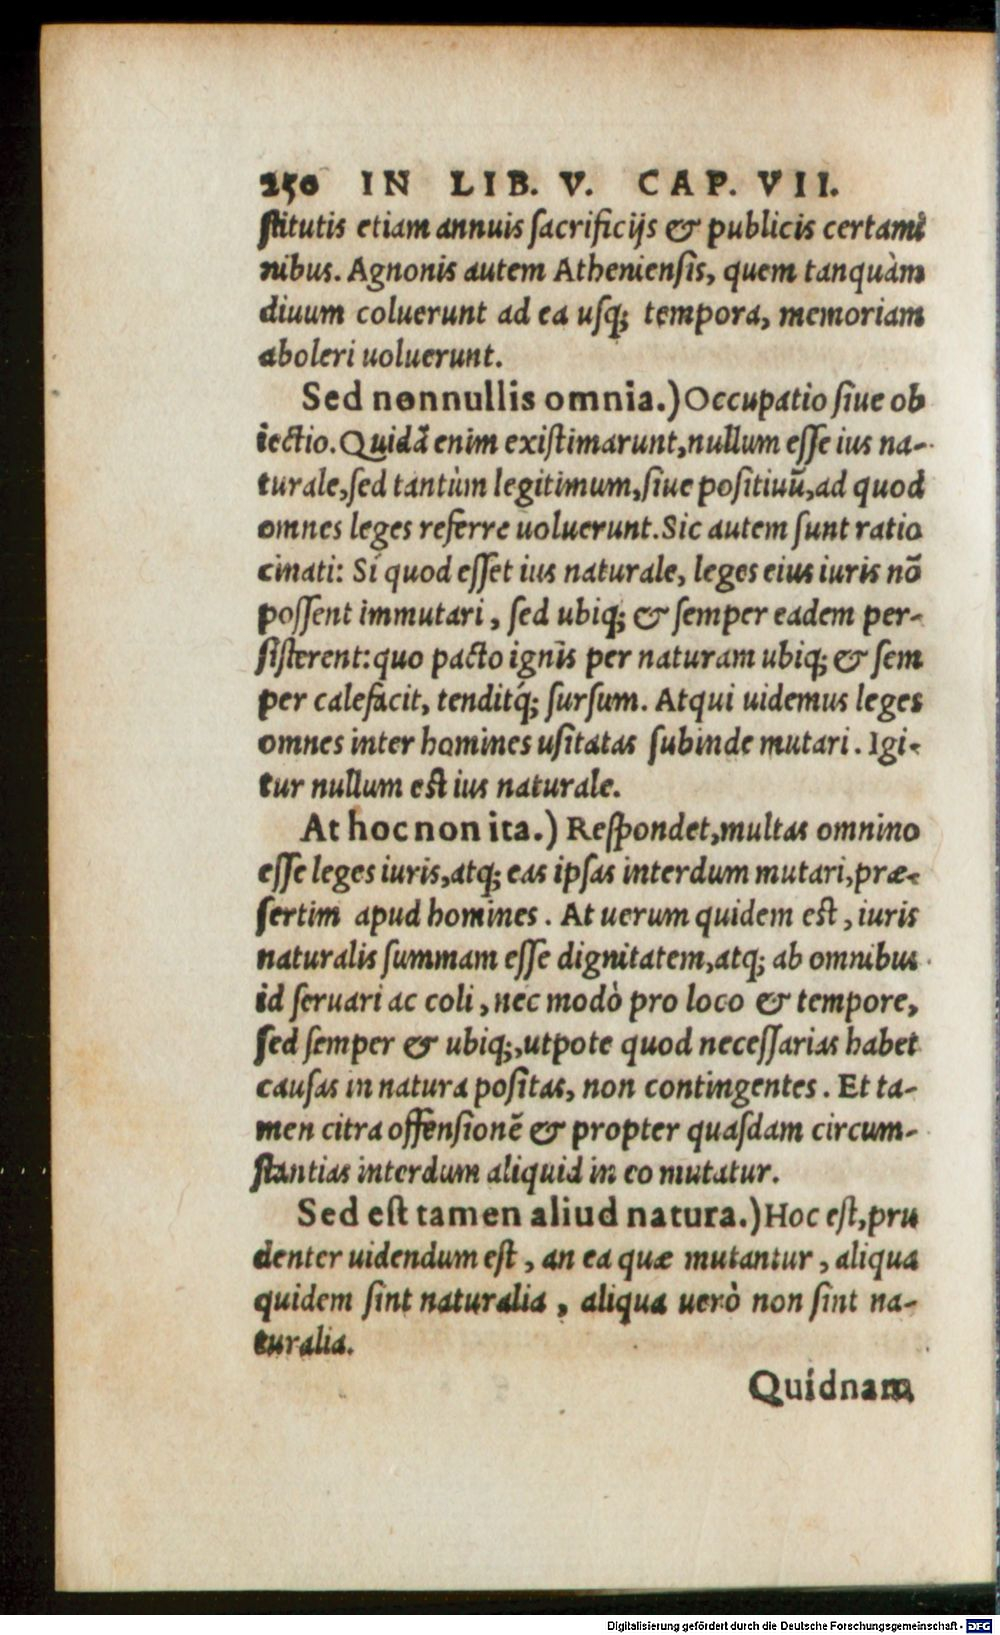 250 IN LIB. V. CAP. VII.
stitutis etiam annuis sacrificijs & publicis certami
nibus. Agnonis autem Atheniensis, quem tanquàm
diuum coluerunt ad ea usq; tempora, memoriam
aboleri uoluerunt.
Sed nonnullis omnia.) Occupatio siue ob
iectio. Quidã enim existimarunt, nullum esse ius na-
turale, sed tantùm legitimum, siue positiuũ, ad quod
omnes leges referre uoluerunt. Sic autem sunt ratio
cinati: Si quod esset ius naturale, leges eius iuris nõ
possent immutari, sed ubiq; & semper eadem per-
sisterent: quo pacto ignis per naturam ubiq; & sem
per calefacit, tenditq́; sursum. Atqui uidemus leges
omnes inter homines usitatas subinde mutari. Igi-
tur nullum est ius naturale.
At hoc non ita.) Respondet, multas omnino
esse leges iuris, atq; eas ipsas interdum mutari, præ-
sertim apud homines. At uerum quidem est, iuris
naturalis summam esse dignitatem, atq; ab omnibus
id seruari ac coli, nec modò pro loco & tempore,
sed semper & ubiq;, utpote quod necessarias habet
causas in natura positas, non contingentes. Et ta-
men citra offensionẽ & propter quasdam circum-
stantias interdum aliquid in eo mutatur.
Sed est tamen aliud natura.) Hoc est, pru
denter uidendum est, an ea quæ mutantur, aliqua
quidem sint naturalia, aliqua uerò non sint na-
turalia.
Quidnam
Digitalisierung gefördert durch die Deutsche Forschungsgemeinschaft - DFG